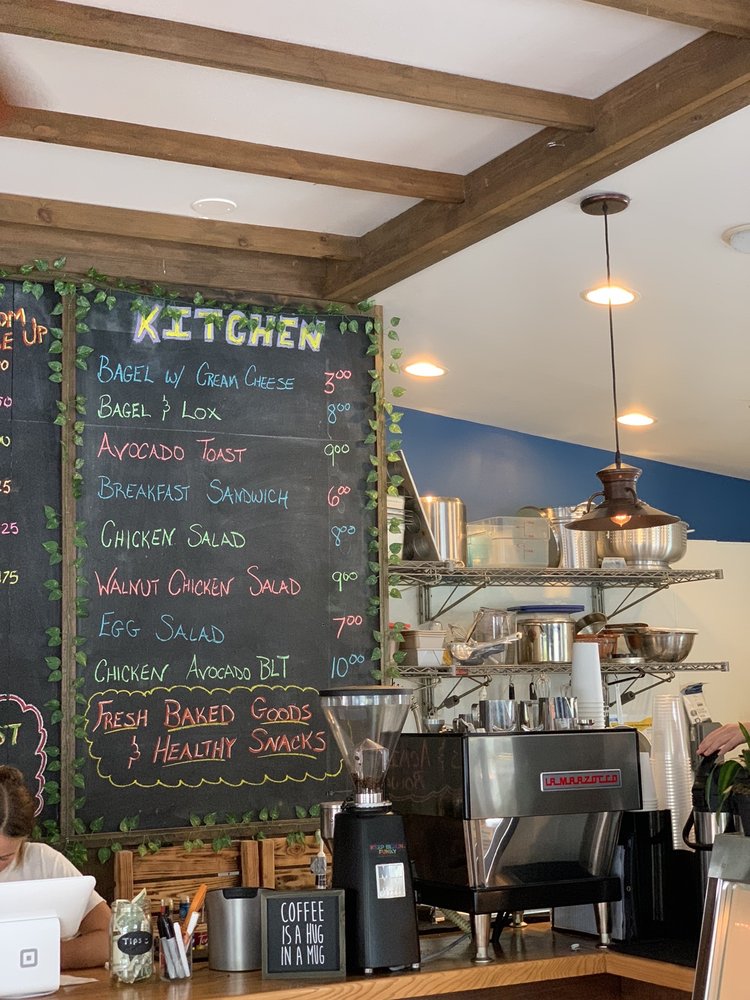 OM
E UP
25
25
175
ST
KITCHEN
BAGEL W/ CREAM CHEESE 3.00
BAGEL & LOX 8.00
AVOCADO TOAST 9.00
BREAKFAST SANDWICH 6.00
CHICKEN SALAD 8.00
WALNUT CHICKEN SALAD 9.00
EGG SALAD 7.00
CHICKEN AVOCADO BLT 10.00
FRESH BAKED GOODS
& HEALTHY SNACKS
LA MARZOCCO
Tips
COFFEE
IS A HUG
IN A MUG